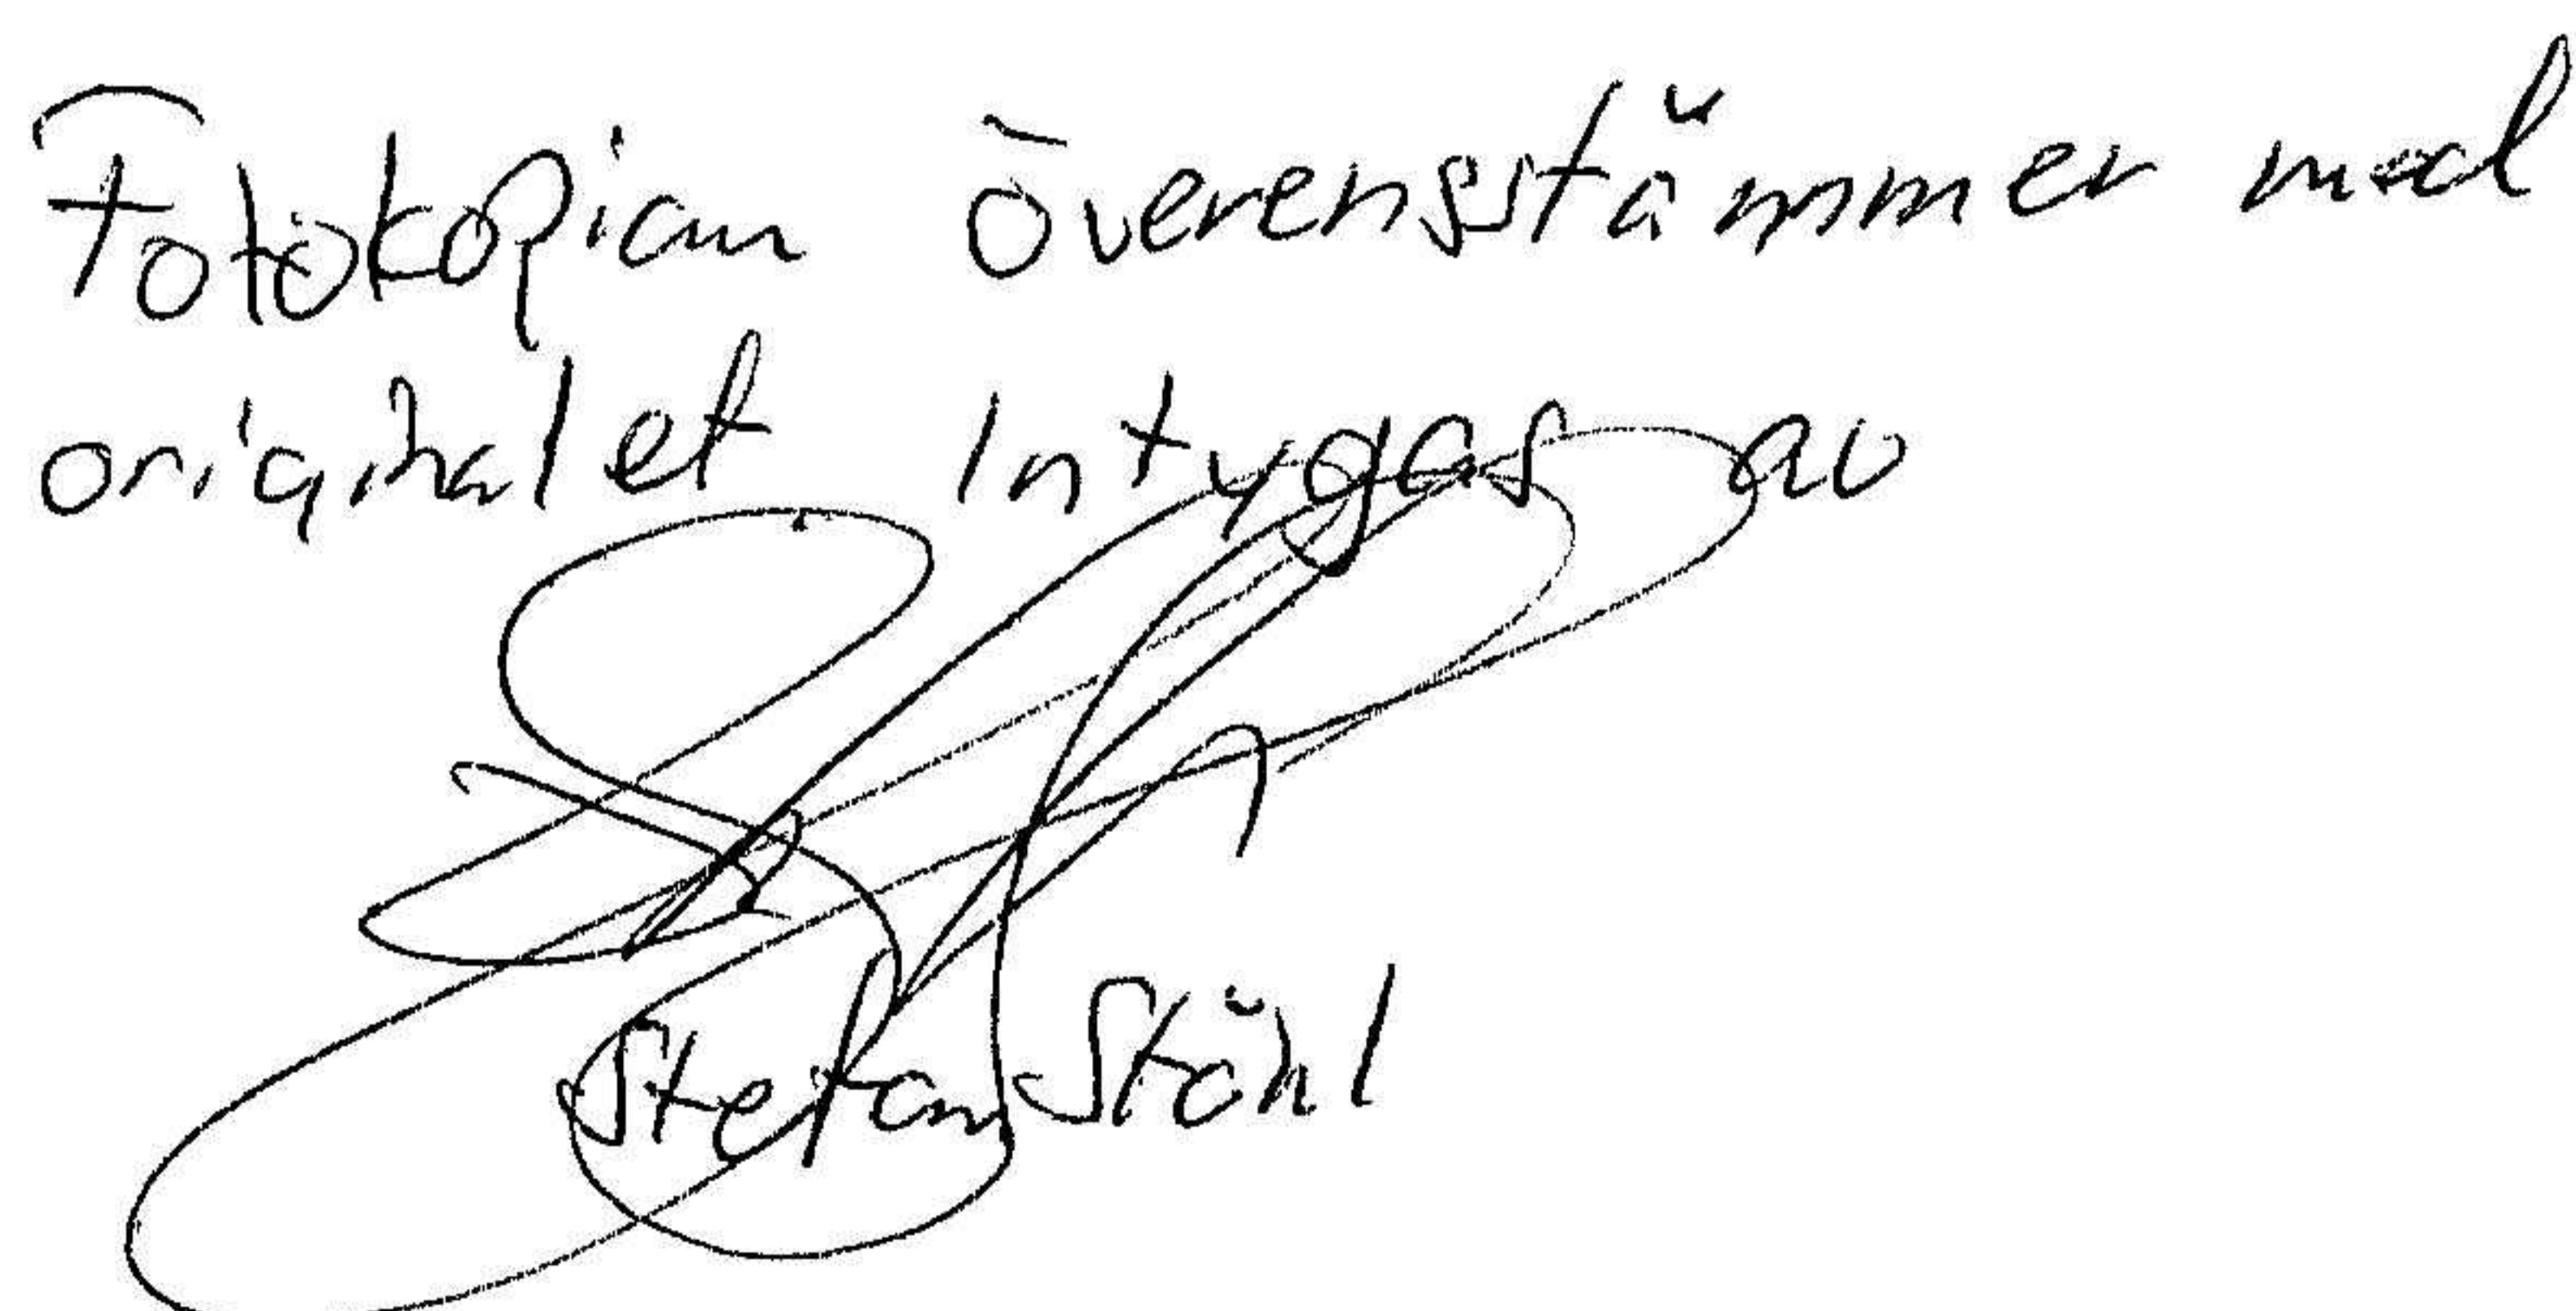 Fotokopian överensstämmer med
originalet Intygas av
Stefan Ståhl